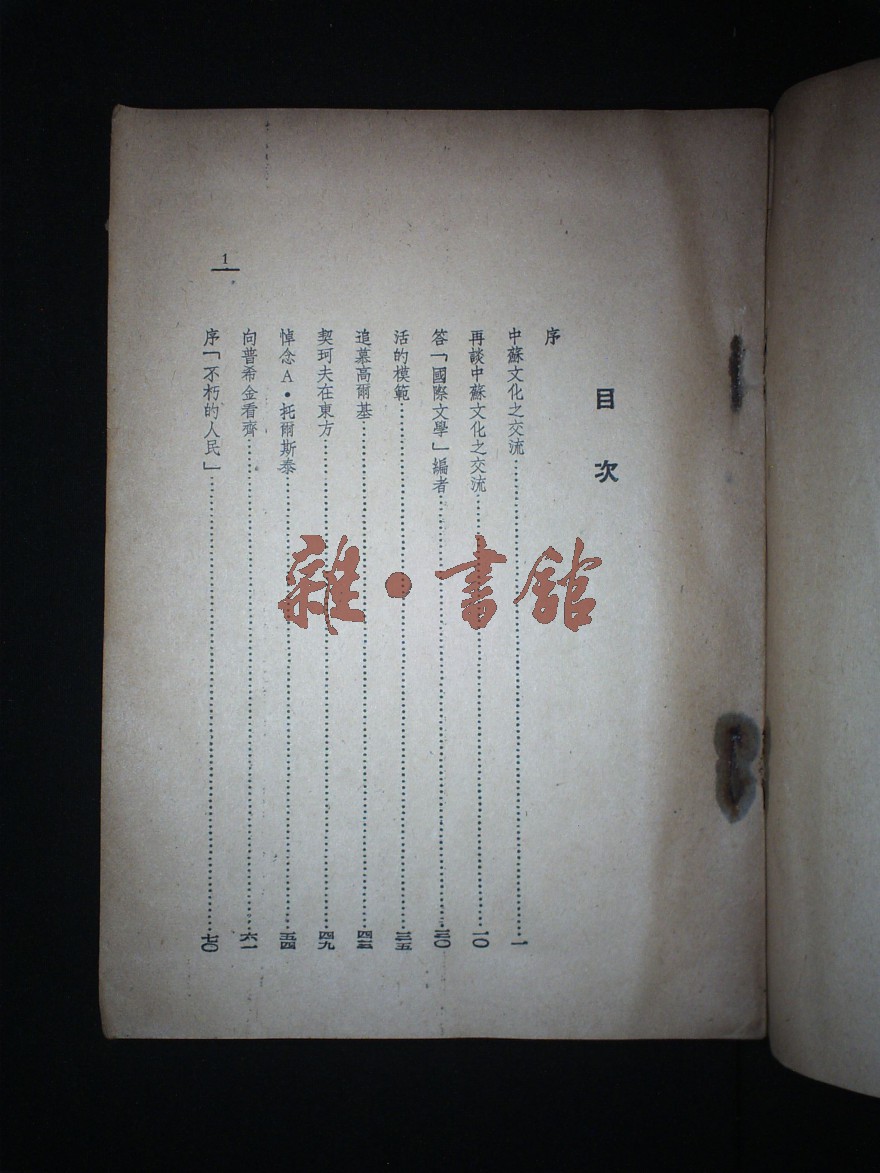 目次
序
中蘇文化之交流……一
再談中蘇文化之交流……一〇
答「國際文學」編者……三〇
活的模範……三五
追慕高爾基……四三
契珂夫在東方……四九
悼念A·托爾斯泰……五四
向普希金看齊……六一
序「不朽的人民」……七〇
1
雜·書館